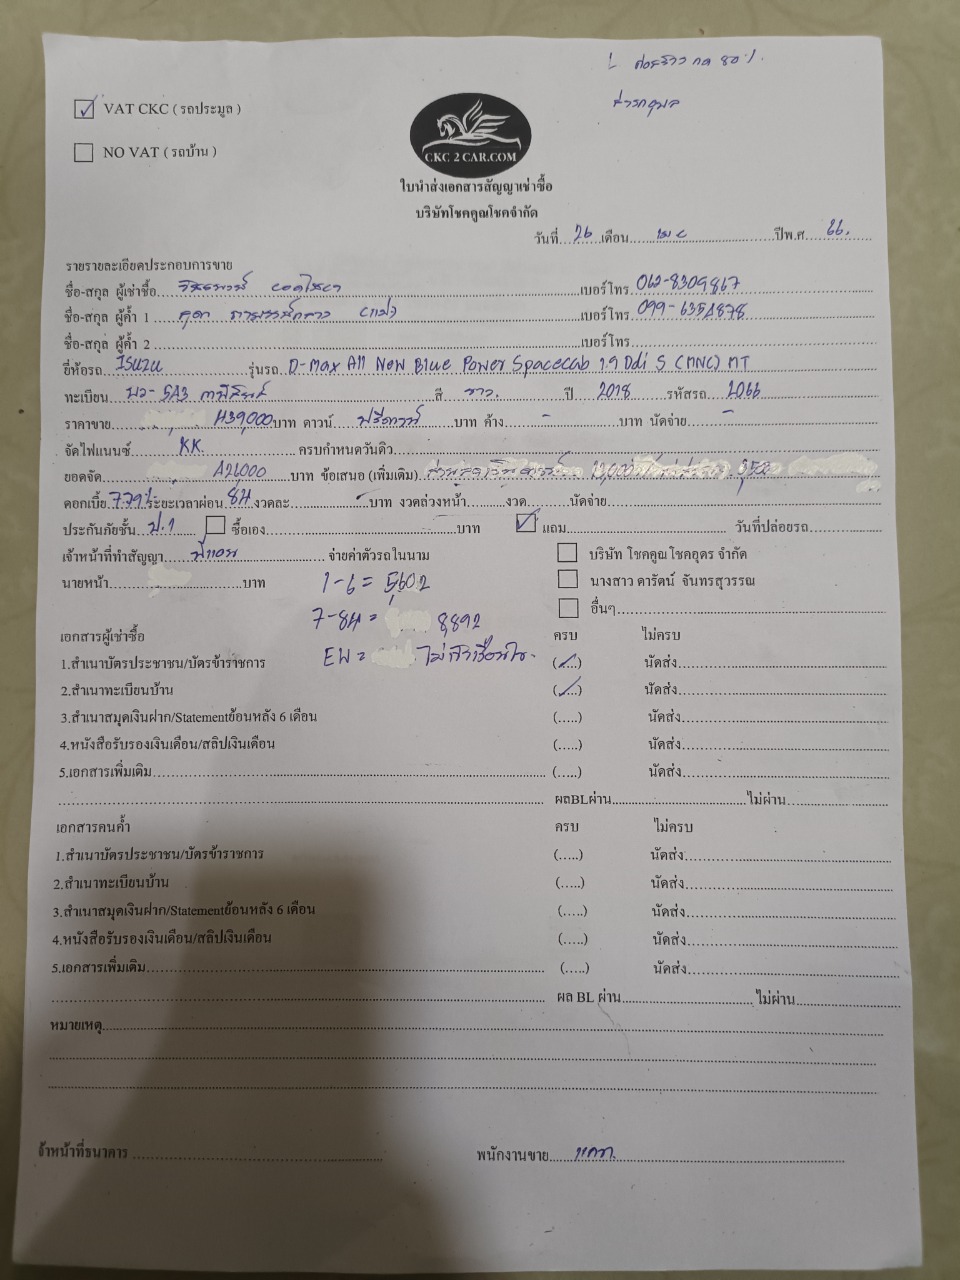 VAT CKC ( รถประมูล )
NO VAT ( รถบ้าน )
CKC 2 CAR.COM
ใบนำส่งเอกสารสัญญาเช่าซื้อ
บริษัทโชคคูณโชคจำกัด
วันที่ 26 เดือน เม.ย ปีพ.ศ. 66.
รายรายละเอียดประกอบการขาย
ชื่อ-สกุล ผู้เช่าซื้อ เบอร์โทร 062-8309867
ชื่อ-สกุล ผู้ค้ำ 1 เบอร์โทร 099-6354878
ชื่อ-สกุล ผู้ค้ำ 2 เบอร์โทร
ยี่ห้อรถ ISUZU รุ่นรถ D-Max All New Blue Power Spacecab 1.9 Ddi S (MNC) MT
ทะเบียน กาฬสินธุ์ สี ขาว. ปี 2018 รหัสรถ 2066
ราคาขาย 439,000 บาท ดาวน์ ฟรีดาวน์ บาท ค้าง - บาท นัดจ่าย -
จัดไฟแนนซ์ KK. ครบกำหนดวันดิว
ยอดจัด 426000 บาท ข้อเสนอ (เพิ่มเติม)
ดอกเบี้ย 7.79 ระยะเวลาผ่อน 84 งวดละ บาท งวดล่วงหน้า งวด นัดจ่าย
ประกันภัยชั้น ป.1 ซื้อเอง บาท แถม วันที่ปล่อยรถ
เจ้าหน้าที่ทำสัญญา จ่ายค่าตัวรถในนาม บริษัท โชคคูณโชคอุดร จำกัด
นายหน้า บาท 1-6 = 5,602 นางสาว ดารัตน์ จันทรสุวรรณ
7-84 = 8,892 อื่นๆ
เอกสารผู้เช่าซื้อ ครบ ไม่ครบ
1.สำเนาบัตรประชาชน/บัตรข้าราชการ EW = ไม่เข้าเงื่อนไข. (.....) นัดส่ง
2.สำเนาทะเบียนบ้าน (.....) นัดส่ง
3.สำเนาสมุดเงินฝาก/Statementย้อนหลัง 6 เดือน (.....) นัดส่ง
4.หนังสือรับรองเงินเดือน/สลิปเงินเดือน (.....) นัดส่ง
5.เอกสารเพิ่มเติม (.....) นัดส่ง
ผลBLผ่าน ไม่ผ่าน
เอกสารคนค้ำ ครบ ไม่ครบ
1.สำเนาบัตรประชาชน/บัตรข้าราชการ (.....) นัดส่ง
2.สำเนาทะเบียนบ้าน (.....) นัดส่ง
3.สำเนาสมุดเงินฝาก/Statementย้อนหลัง 6 เดือน (.....) นัดส่ง
4.หนังสือรับรองเงินเดือน/สลิปเงินเดือน (.....) นัดส่ง
5.เอกสารเพิ่มเติม (.....) นัดส่ง
ผล BL ผ่าน ไม่ผ่าน
หมายเหตุ
จ้าหน้าที่ธนาคาร พนักงานขาย